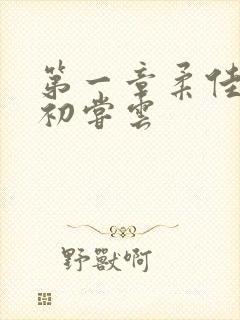 第一章柔佳
初尝云
野獸啊